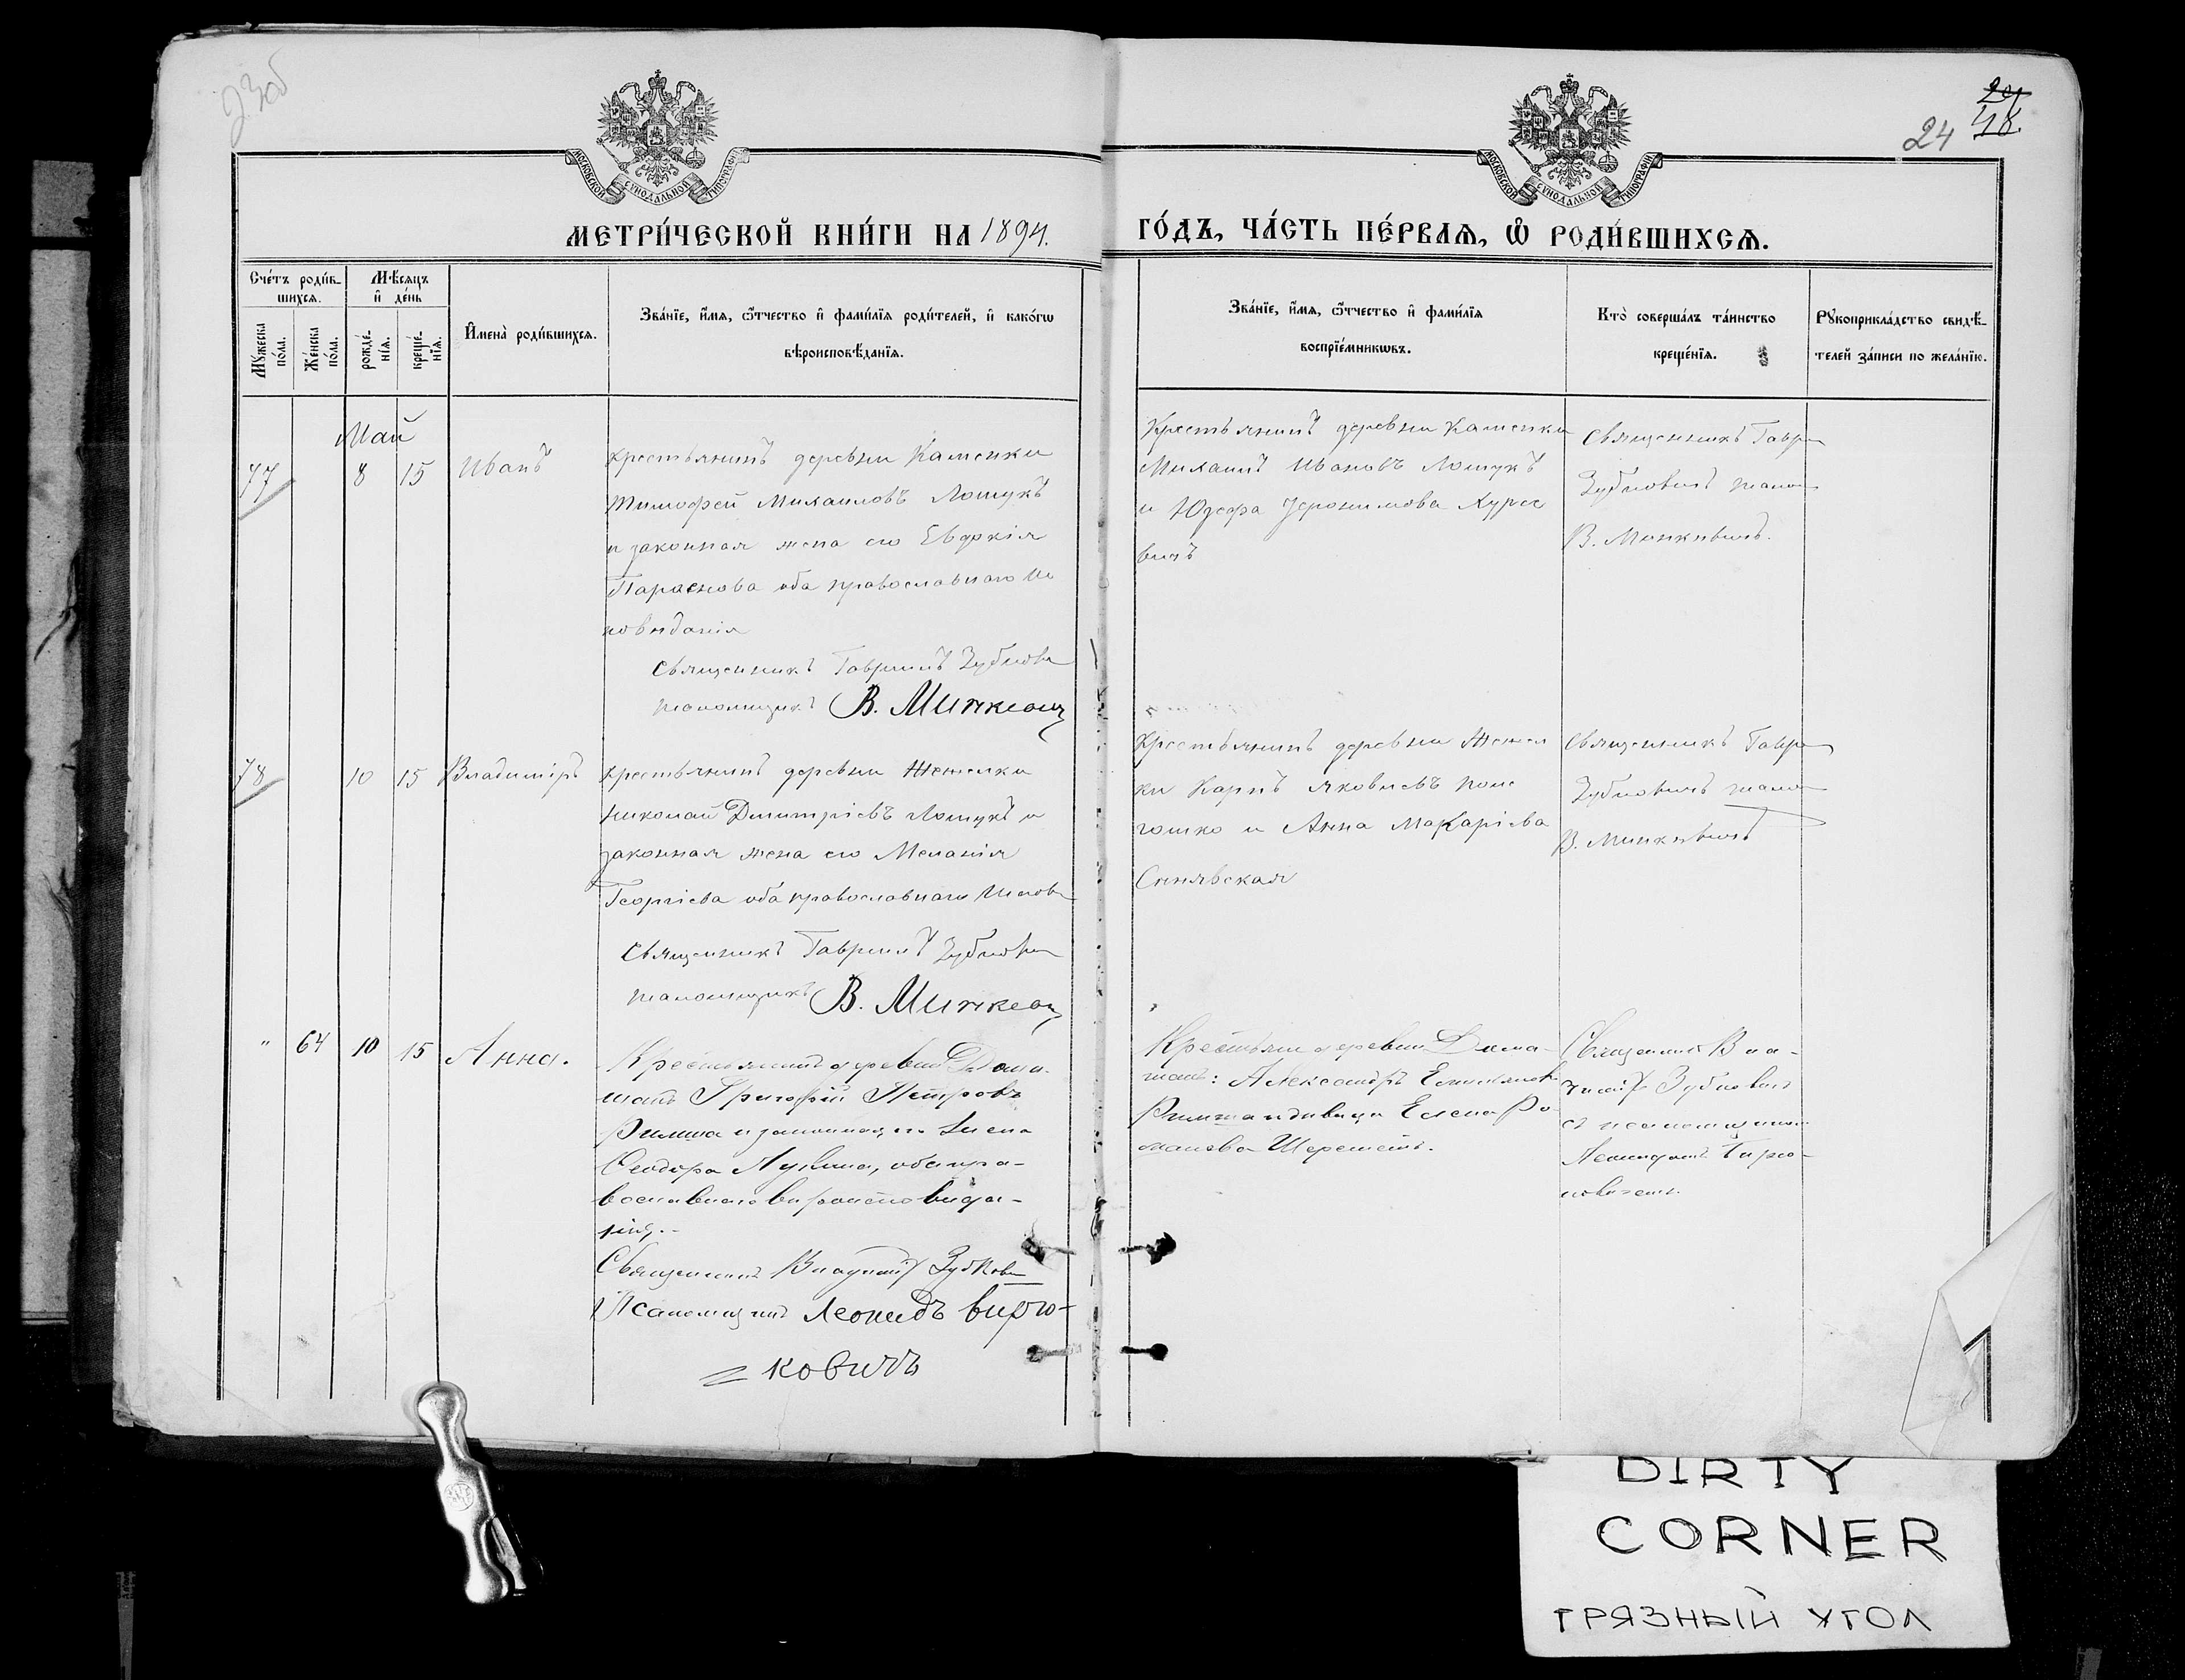 23об
24
29
48.
МОСКОВСКОЙ СУНОДАЛЬНОЙ ТИПОГРАФІИ
МОСКОВСКОЙ СУНОДАЛЬНОЙ ТИПОГРАФІИ
МЕТРИ́ЧЕСКОЙ КНИ́ГИ НА 1894.
ГО́ДЪ, ЧА́СТЬ ПЕ́РВАѦ, Ѡ҆ РОДИ́ВШИХСѦ.
Сче́тъ роди́в-
шихсѧ.
Мѣ́сѧцъ
и҆ де́нь
Мꙋ́жеска
по́ла.
Же́нска
по́ла.
рожде́-
нїѧ.
креще́-
нїѧ.
И҆мена̀ роди́вшихсѧ.
Зва́нїе, и҆́мѧ, ѻ҆́тчество и҆ фами́лїѧ роди́телей, и҆ како́гѡ
вѣроисповѣ́данїѧ.
Зва́нїе, и҆́мѧ, ѻ҆́тчество и҆ фами́лїѧ
воспрїе́мникѡвъ.
Кто̀ соверша́лъ та́инство
креще́нїѧ.
Рꙋкоприкла́дство свидѣ́-
телей за́писи по жела́нїю.
Май
77 8 15 Иванъ
крестьянинъ деревни Каменки
Тимофей Михаиловъ Лошукъ
и законная жена его Евдокія
оба православнаго Ис
повѣданія
Священникъ Гавриилъ Зубкови
псаломщикъ В. Минкевич
Крестьянинъ деревни Каменки
Михаилъ Ивановъ Лошукъ
и Юзефа Іеронимова Курсе
вичъ
Священникъ Гаври
Зубковичъ псалом
В. Минкевичъ.
78 10 15 Владиміръ
крестьянинъ деревни Женелки
Николай Димитріевъ Лошукъ и
законная жена его Меланія
Георгіева оба православнаго Испов
Священникъ Гавриилъ Зубкови
псаломщикъ В. Минкевич
крестьянинъ деревни Женел
ки Карпъ Яковлевъ
и Анна Макаріева
Синявская
Священникъ Гаври
Зубковичъ псалом
В. Минкевичъ
" 64 10 15 Анна.
Крестьянинъ деревни Дома-
шанъ Григорій Петровъ
и законная его жена
Ѳеодора Лукина, оба пра-
вославнаго вѣроисповѣда-
нія.-
Священникъ Зубкови
Псаломщикъ Леонидъ Бирю-
= ковичъ
Крестьяне деревни Дома-
шанъ: Александръ
Елена Ро
манова Шереметъ.
Священникъ
Зубковичъ
съ псаломщикомъ
Леонидомъ Бирю-
ковичемъ.
DIRTY
CORNER
ГРЯЗНЫЙ УГОЛ